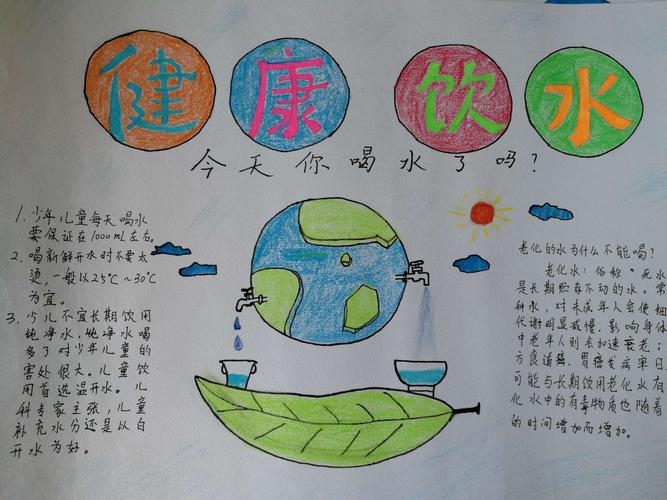 健康饮水
今天你喝水了吗?
1. 少年儿童每天喝水
要保证在1000mL左右。
2. 喝新鲜开水时不要太
烫,一般以25℃~30℃
为宜。
3. 少儿不宜长期饮用
纯净水,纯净水喝
多了对少年儿童的
害处很大。儿童饮
用首选温开水。儿
科专家主张,儿童
补充水分还是以白
开水为好。
老化的水为什么不能喝?
老化水:俗称“死水
是长期贮存不动的水。常
种水,对未成年人会使细
代谢明显减慢,影响身体
中老年人则会加速衰老;
方食道癌、胃癌发病率日
可能与长期饮用老化水有
化水中的有毒物质也随着
的时间增加而增加。